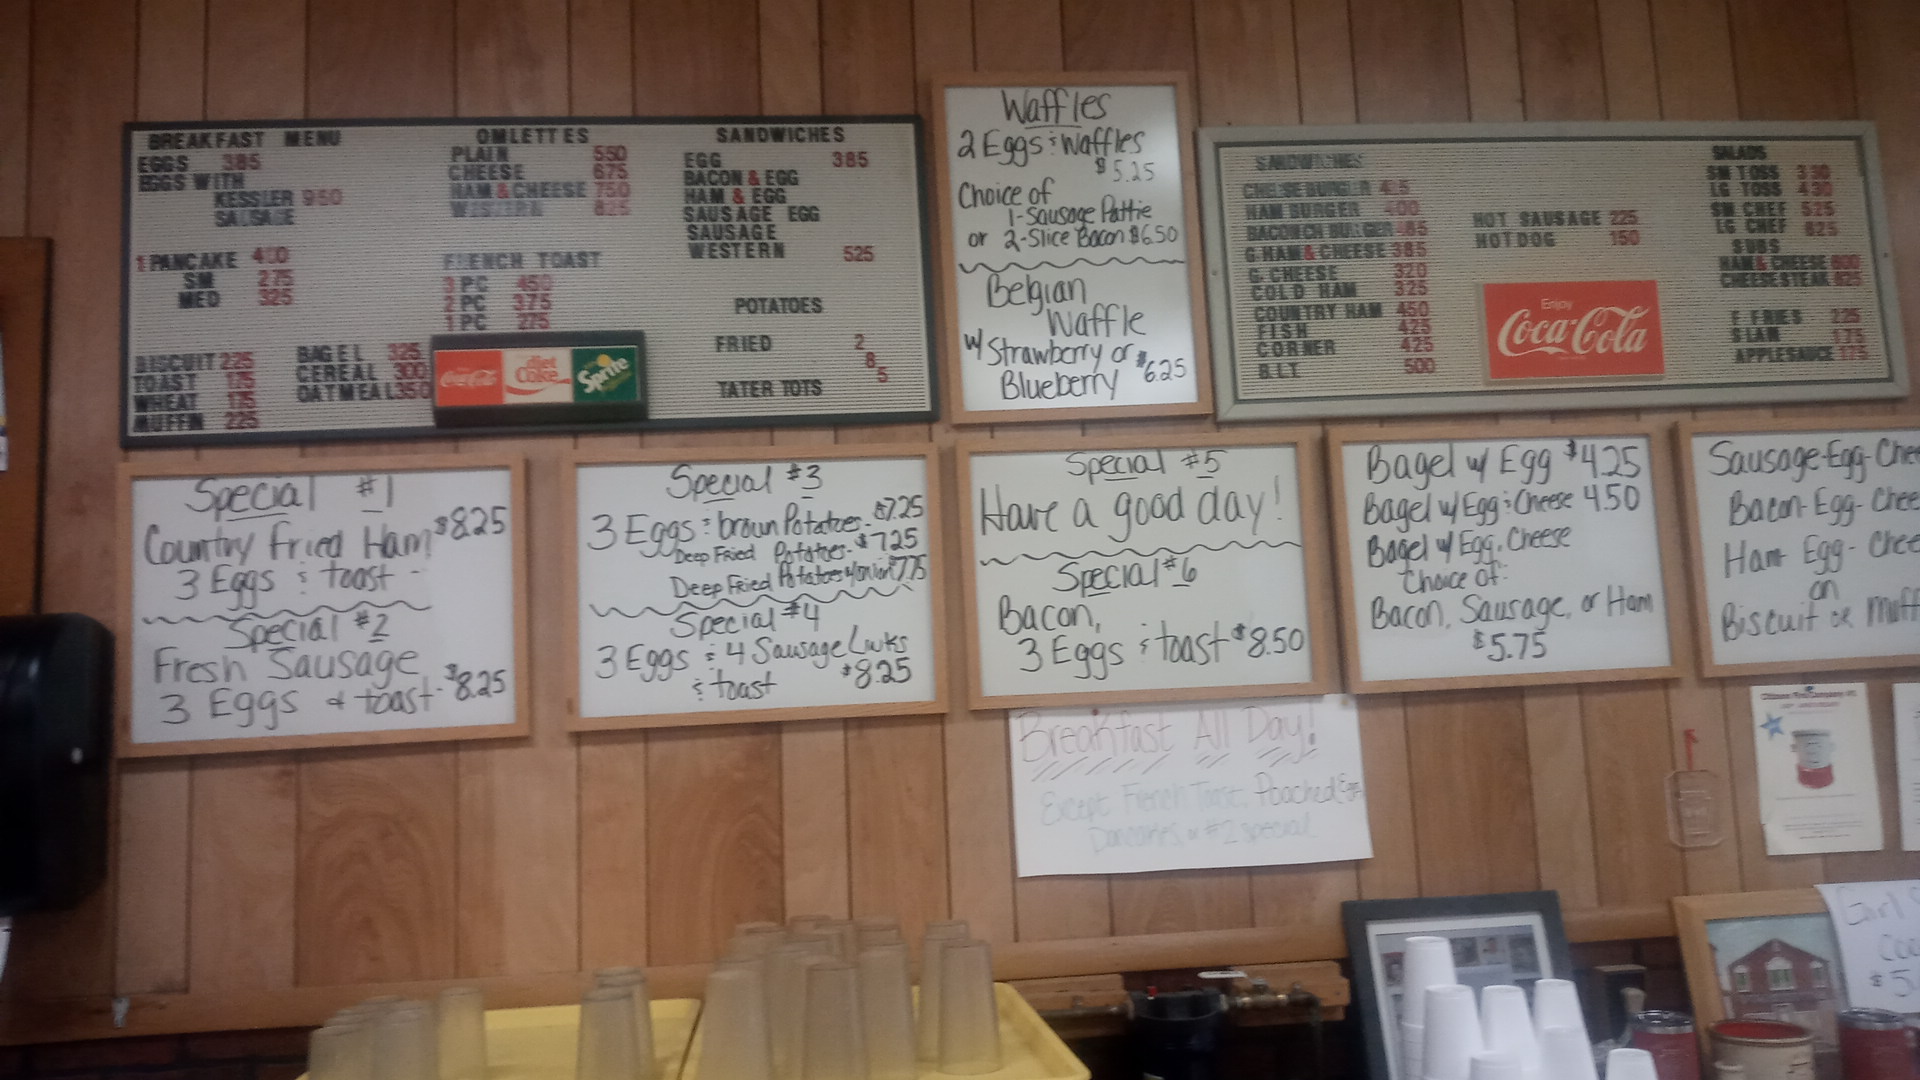 BREAKFAST MENU
EGGS 385
EGGS WITH
KESSLER 950
SAUSAGE
1 PANCAKE 400
SM 275
MED 325
BISCUIT 225
TOAST 175
WHEAT 175
MUFFIN 225
BAGEL 325
CEREAL 300
OATMEAL 350
OMLETTES
PLAIN 550
CHEESE 675
HAM & CHEESE 750
WESTERN 825
FRENCH TOAST
3 PC 450
2 PC 375
1 PC 275
Coca-Cola
diet Coke
Sprite
SANDWICHES
EGG 385
BACON & EGG
HAM & EGG
SAUSAGE EGG
SAUSAGE
WESTERN 525
POTATOES
FRIED 2
8
5
TATER TOTS
Waffles
2 Eggs & Waffles
$5.25
Choice of
1-Sausage Pattie
or 2-Slice Bacon $6.50
Belgian
Waffle
w/ Strawberry or
Blueberry $6.25
SANDWICHES
CHEESEBURGER
HAMBURGER 400
BACON CH BURGER 485
G.HAM & CHEESE 385
G. CHEESE 320
COLD HAM 325
COUNTRY HAM 450
FISH 425
CORNER 425
B.L.T 500
HOT SAUSAGE 225
HOTDOG 150
Enjoy
Coca-Cola
SALADS
SM TOSS
LG TOSS
SM CHEF 525
LG CHEF 625
SUBS
HAM & CHEESE
CHEESESTEAK
F. FRIES 225
SLAW 175
APPLESAUCE 175
Special #1
Country Fried Ham $8.25
3 Eggs & toast -
Special #2
Fresh Sausage
3 Eggs & toast - $8.25
Special #3
3 Eggs & brown Potatoes - $7.25
Deep Fried Potatoes - $7.25
Deep Fried Potatoes w/onion 7.75
Special #4
3 Eggs & 4 Sausage Links
& toast $8.25
Special #5
Have a good day!
Special #6
Bacon,
3 Eggs & toast $8.50
Bagel w/ Egg $4.25
Bagel w/ Egg & Cheese 4.50
Bagel w/ Egg, Cheese
Choice of:
Bacon, Sausage, or Ham
$5.75
Sausage-Egg-Chee
Bacon-Egg-Chee
Ham Egg-Chee
on
Biscuit or Muff
Breakfast All Day!
Except French Toast, Poached Eggs
Pancakes, or #2 special
Girl
Coo
$5